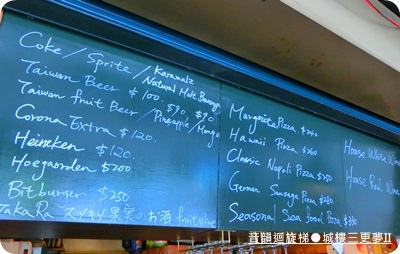 Coke / Sprite / Karamalz
Natural Malt Beverage
Taiwan Beer $100. $90. $90.
Taiwan fruit Beer / Pineapple / Mango
Corona Extra $120
Heineken $120.
Hoegaarden $200
Bitburger $250
TaKaRa スッキリ果実のお酒 fruit wine
Margerita Pizza $260
Hawaii Pizza
Classic Napoli Pizza $250
German Sausage Pizza $280
Seasonal Sea food Pizza
House White Wine
House Red Wine
音韻迴旋梯●城樓三更夢II